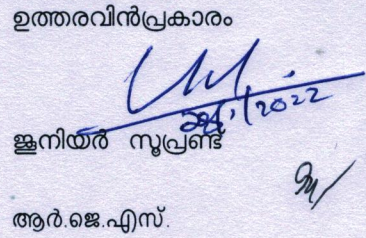 ഉത്തരവിൻപ്രകാരം
ജൂനിയർ സൂപ്രണ്ട്
ആർ.ജെ.എസ്.